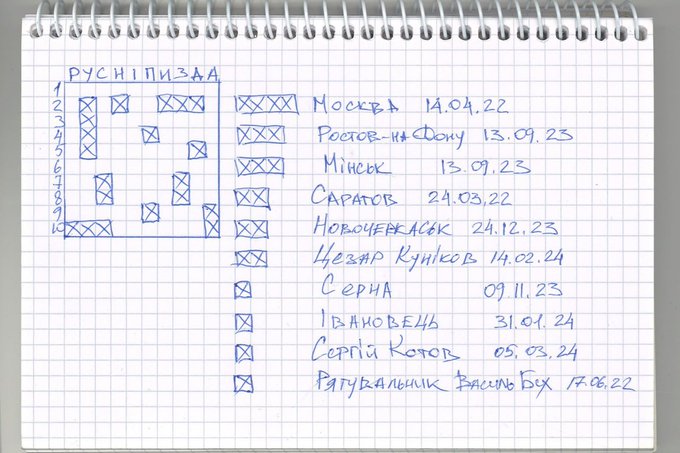 РУСНІПИЗДА
1
2
3
4
5
6
7
8
9
10
Москва 14.04.22
Ростов-на Фону 13.09.23
Мінськ 13.09.23
Саратов 24.03.22
Новочеркаськ 24.12.23
Цезар Куніков 14.02.24
Сєрна 09.11.23
Івановець 31.01.24
Сєргій Котов 05.03.24
Рятувальник Василь Бєх 17.06.22